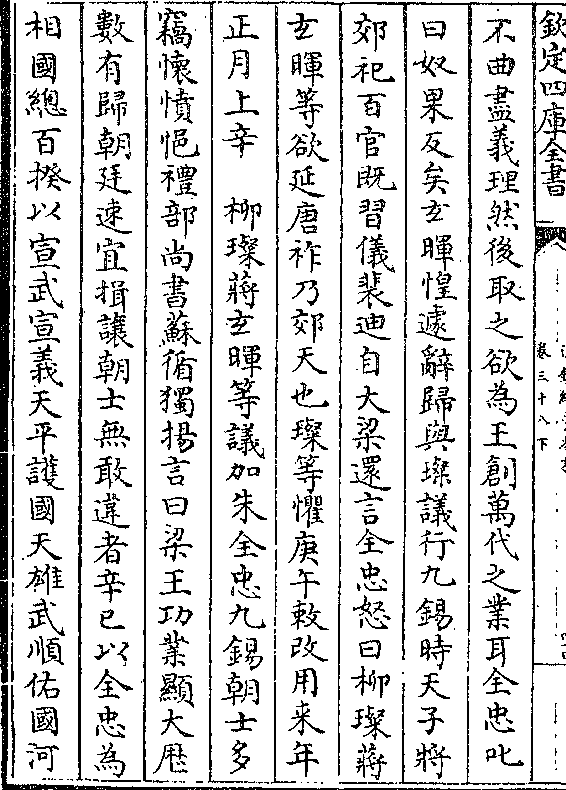 欽定四庫全書
卷三十八下
不曲盡義理然後取之欲為王創萬代之業耳全忠叱
曰奴果反矣玄暉惶遽辭歸與璨議行九錫時天子將
郊祀百官既習儀裴迪自大梁還言全忠怒曰柳璨蔣
玄暉等欲延唐祚乃郊天也璨等懼庚午敕改用来年
正月上辛　柳璨蔣玄暉等議加朱全忠九錫朝士多
竊懷憤悒禮部尚書蘇循獨揚言曰梁王功業顯大厯
數有歸朝廷速宜揖讓朝士無敢違者辛巳以全忠為
相國總百揆以宣武宣義天平護國天雄武順佑國河